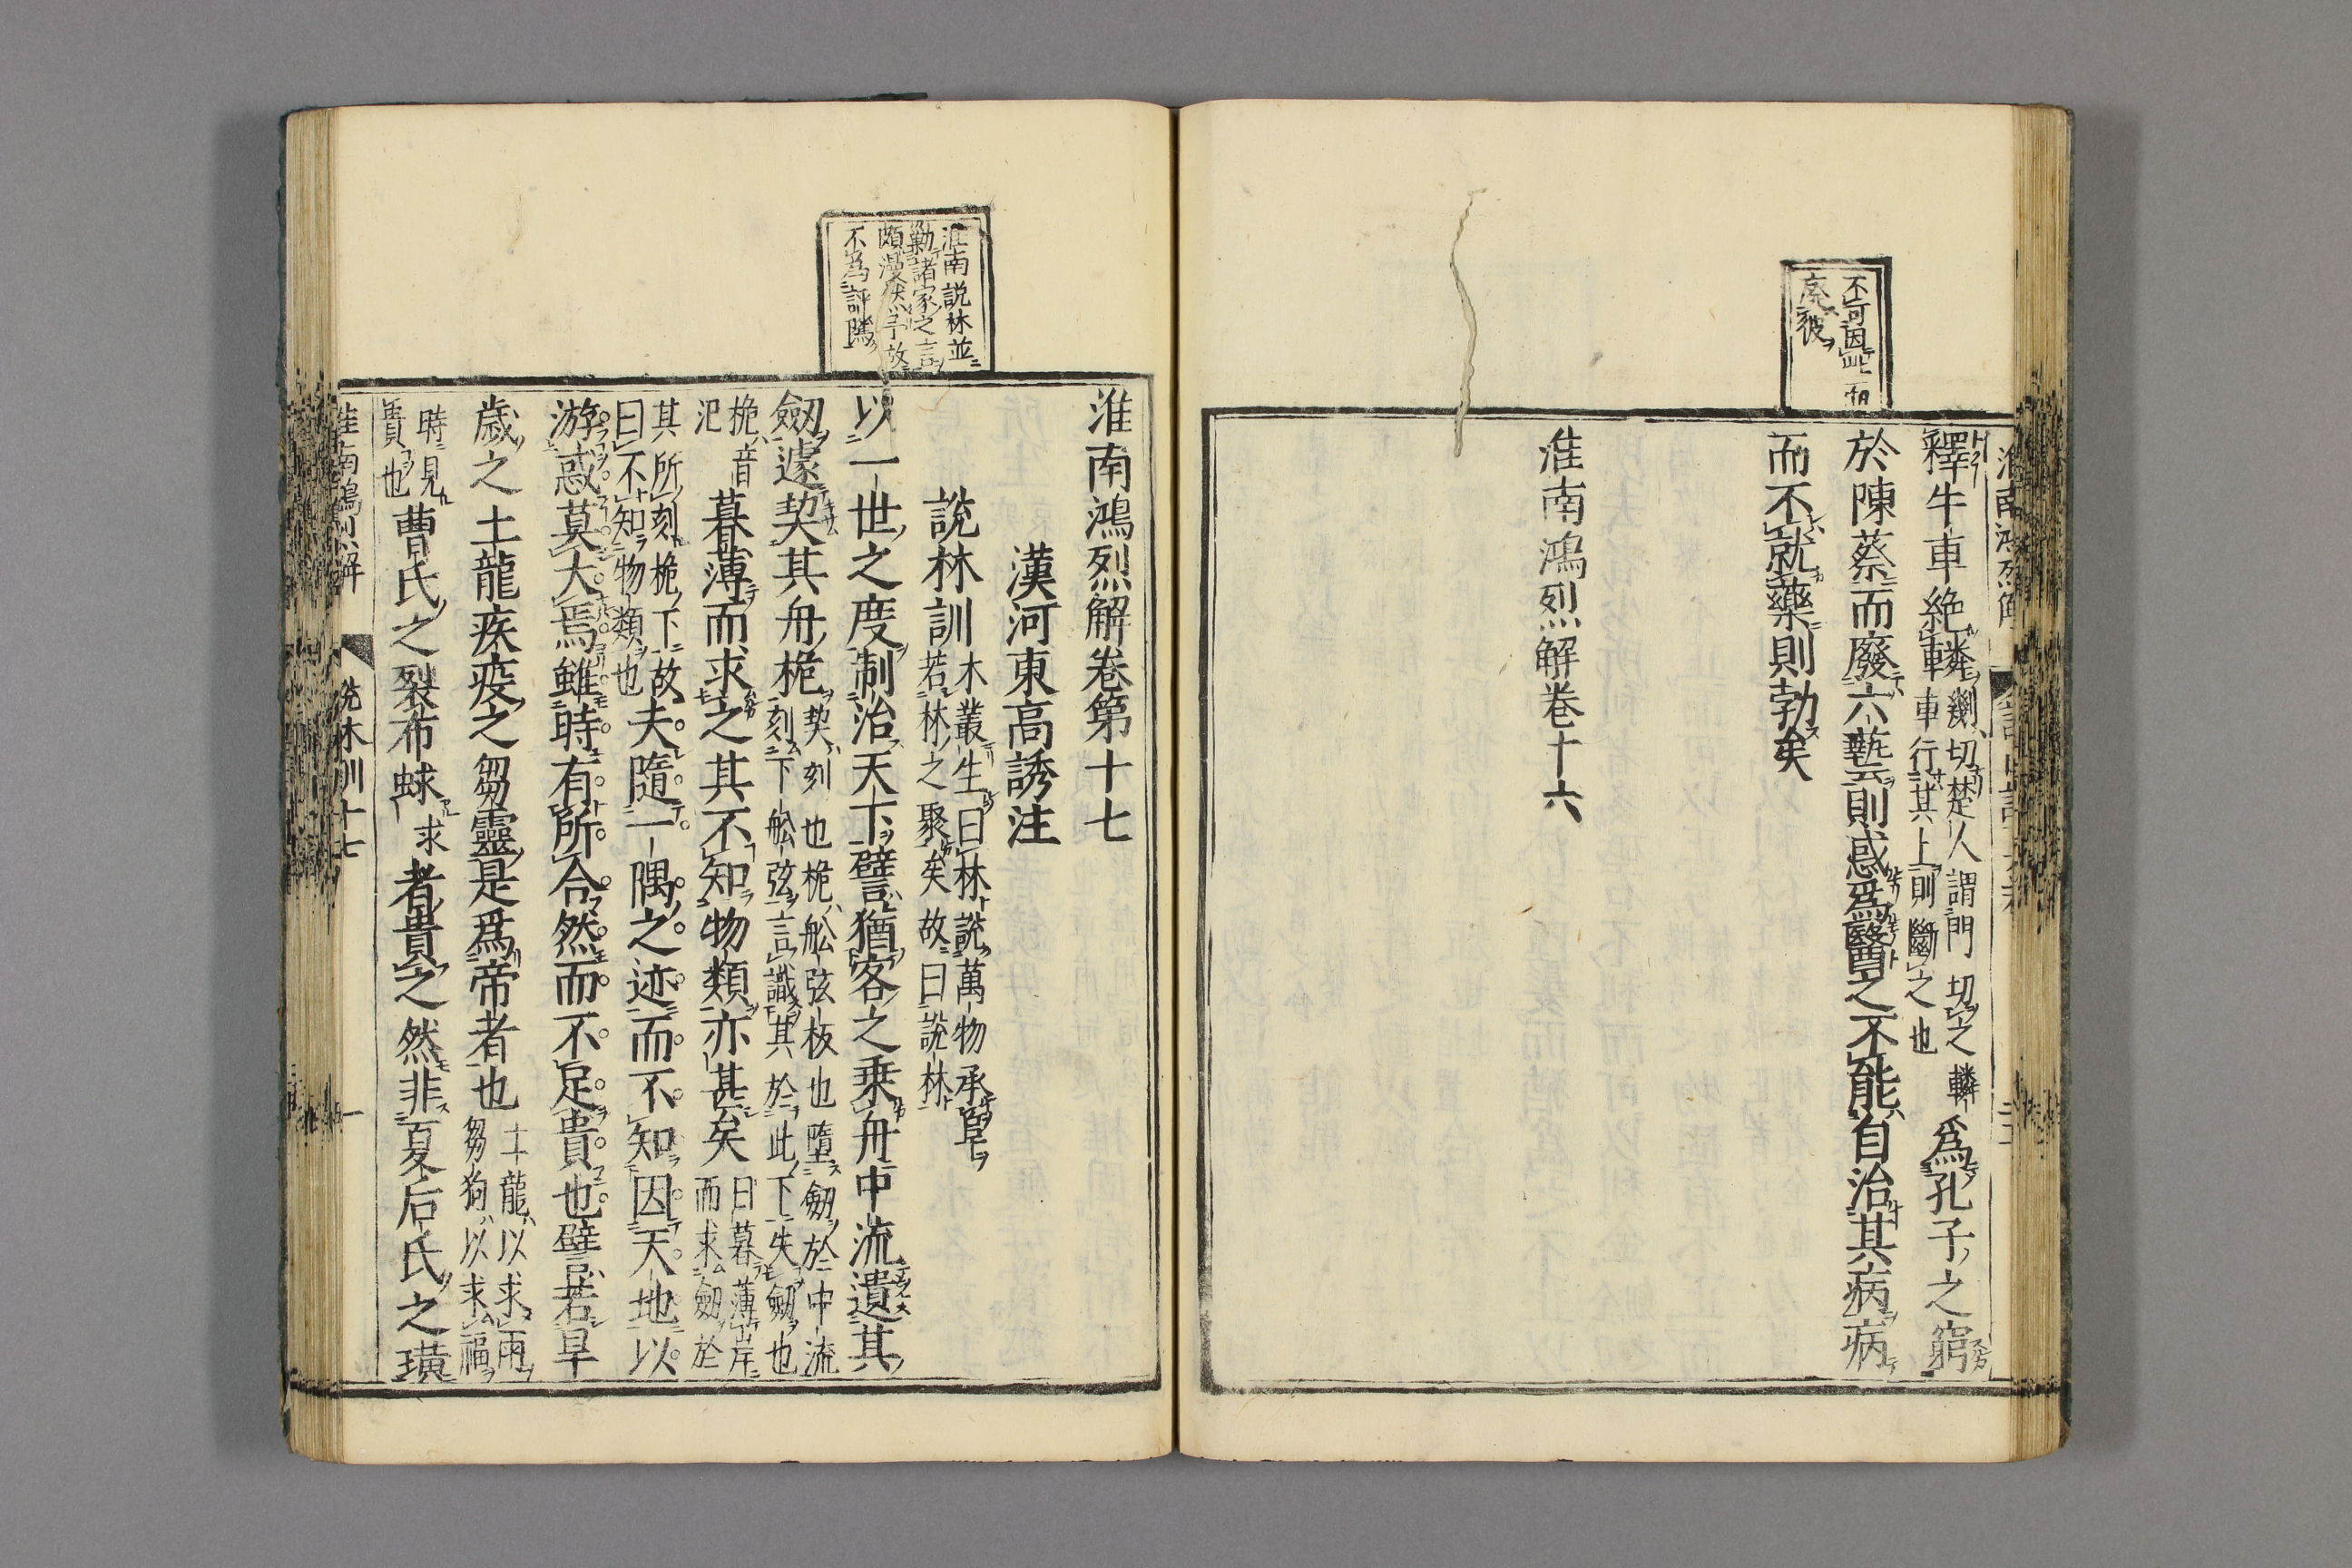 不可因此而
廢彼
釋牛車絶轔
楚人謂門切之轔
車行其上則斷之也
爲孔子之窮
於陳蔡而廢六藝則惑爲醫之不能自治其病病
而不就藥則勃矣
淮南鴻烈解卷十六
淮南說林並
勦諸家之言
頗漫然乎故
不爲評隲
淮南鴻烈解卷第十七
漢河東高誘注
說林訓
木叢生曰林說萬物承阜
若林之聚矣故曰說林
以一世之度制治天下譬猶客之乘舟中流遺其
劒遽契其舟桅
契刻也桅舩弦板也墮劒於中流
刻下舩弦言識其於此下失劒也
桅音
氾
暮薄而求之其不知物類亦甚矣
日暮薄岸
而求劒於
其所刻桅下故
曰不知物類也
夫隨一隅之迹而不知因天地以
游惑莫大焉雖時有所合然而不足貴也譬若旱
歲之土龍疾疫之芻靈是爲帝者也
土龍以求雨
芻狗以求福
時見
貴也
曹氏之裂布蛷
求
者貴之然非夏后氏之璜
淮南鴻烈解
說林訓十七
一